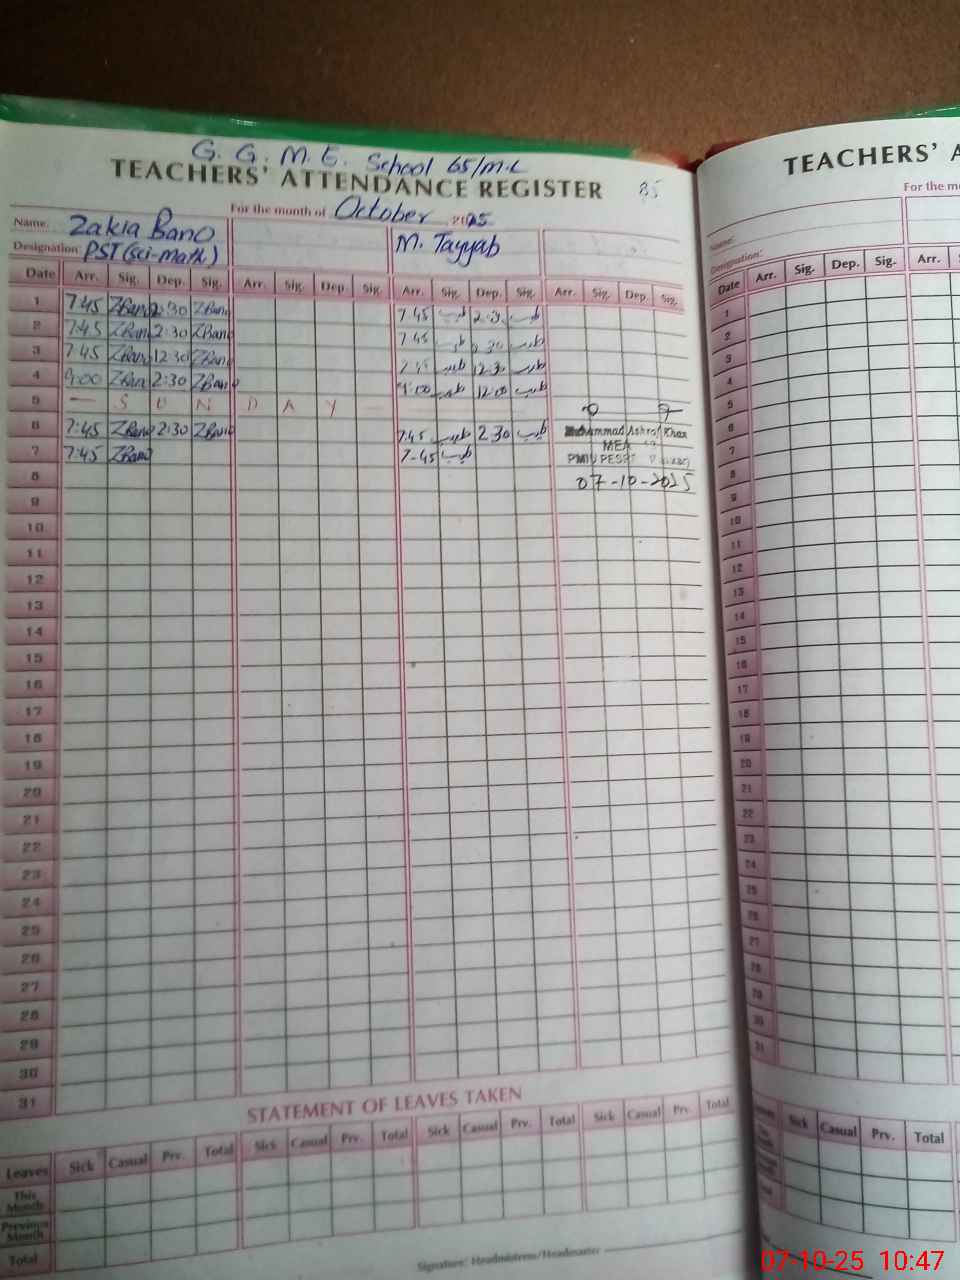 G. G. M. E. School 65/M.L
TEACHERS' ATTENDANCE REGISTER 85
For the month of October 2025
Name: Zakia Bano M. Tayyab
Designation: PST (Sci-math)
Date Arr. Sig. Dep. Sig. Arr. Sig. Dep. Sig. Arr. Sig. Dep. Sig. Arr. Sig. Dep. Sig.
1 7:45 ZBano 2:30 ZBano 7 45 طیب 2:30 طیب
2 7:45 ZBano 2:30 ZBano 7 45 طیب 2 30 طیب
3 7:45 ZBano 12:30 ZBano 7:45 طیب 12:30 طیب
4 9:00 ZBano 2:30 ZBano طیب 12:00 طیب
5 — S U N D A Y —
6 7:45 ZBano 2:30 ZBano 7:45 طیب 2 30 طیب
7 7:45 ZBano 7-45 طیب
Muhammad Ashraf Khan
MEA
PMIU PESRP
07-10-2025
8
9
10
11
12
13
14
15
16
17
18
19
20
21
22
23
24
25
26
27
28
29
30
31
STATEMENT OF LEAVES TAKEN
Leaves Sick Casual Prv. Total Sick Casual Prv. Total Sick Casual Prv. Total Sick Casual Prv. Total
This Month
Previous Month
Total
Signature: Headmistress/Headmaster
TEACHERS' A
For the mo
Name:
Designation:
Date Arr. Sig. Dep. Sig. Arr. S
1
2
3
4
5
6
7
8
9
10
11
12
13
14
15
16
17
18
19
20
21
22
23
24
25
26
27
28
29
30
31
Sick Casual Prv. Total
07-10-25 10:47